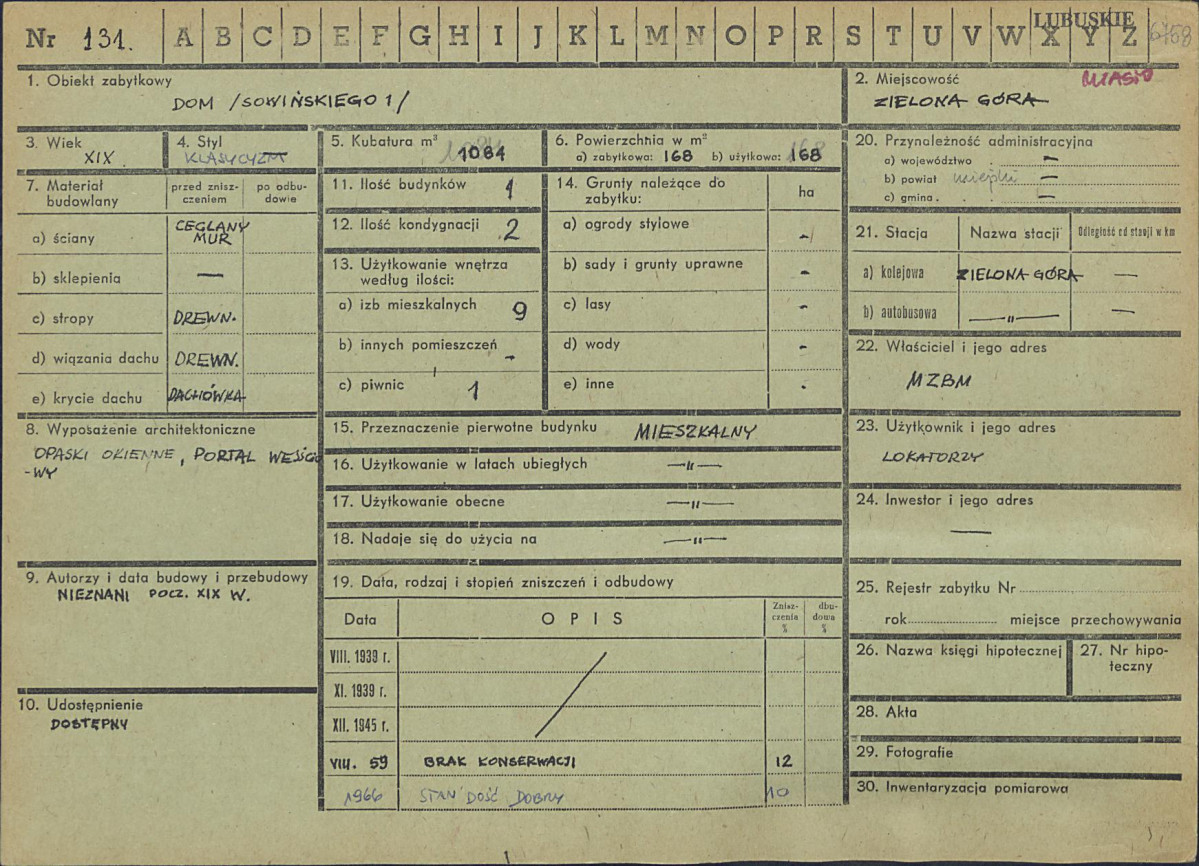 LUBUSKIE
Nr 131. A B C D E F G H I J K L M N O P R S T U V W X Y Z
1. Obiekt zabytkowy
DOM /SOWIŃSKIEGO 1/
2. Miejscowość MIASTO
ZIELONA GÓRA
3. Wiek
XIX
4. Styl
KLASYCYZM
5. Kubatura m³
1084
6. Powierzchnia w m²
a) zabytkowa: 168 b) użytkowa: 168
7. Materiał budowlany
przed znisz-
czeniem
po odbu-
dowie
a) ściany CEGLANY
MUR
b) sklepienia —
c) stropy DREWN.
d) wiązania dachu DREWN.
e) krycie dachu DACHÓWKA
8. Wyposażenie architektoniczne
OPASKI OKIENNE, PORTAL WEJŚCIO
-WY
9. Autorzy i data budowy i przebudowy
NIEZNANI POCZ. XIX W.
10. Udostępnienie
DOSTĘPNY
11. Ilość budynków 1
12. Ilość kondygnacji 2
13. Użytkowanie wnętrza
według ilości:
a) izb mieszkalnych 9
b) innych pomieszczeń -
c) piwnic 1
14. Grunty należące do
zabytku: ha
a) ogrody stylowe -
b) sady i grunty uprawne -
c) lasy -
d) wody -
e) inne -
15. Przeznaczenie pierwotne budynku MIESZKALNY
16. Użytkowanie w latach ubiegłych —"—
17. Użytkowanie obecne —"—
18. Nadaje się do użycia na —"—
19. Data, rodzaj i stopień zniszczeń i odbudowy
Data OPIS
Znisz-
czenia
%
dbu-
dowa
%
VIII. 1939 r.
XI. 1939 r.
XII. 1945 r.
VIII. 59 BRAK KONSERWACJI 12
1966 STAN DOŚĆ DOBRY 10
20. Przynależność administracyjna
a) województwo . —
b) powiat miejski —
c) gmina . —
21. Stacja Nazwa stacji Odległość od stacji w km
a) kolejowa ZIELONA GÓRA —
b) autobusowa —"— —
22. Właściciel i jego adres
MZBM
23. Użytkownik i jego adres
LOKATORZY
24. Inwestor i jego adres
—
25. Rejestr zabytku Nr
rok miejsce przechowywania
26. Nazwa księgi hipotecznej
27. Nr hipo-
teczny
28. Akta
29. Fotografie
30. Inwentaryzacja pomiarowa